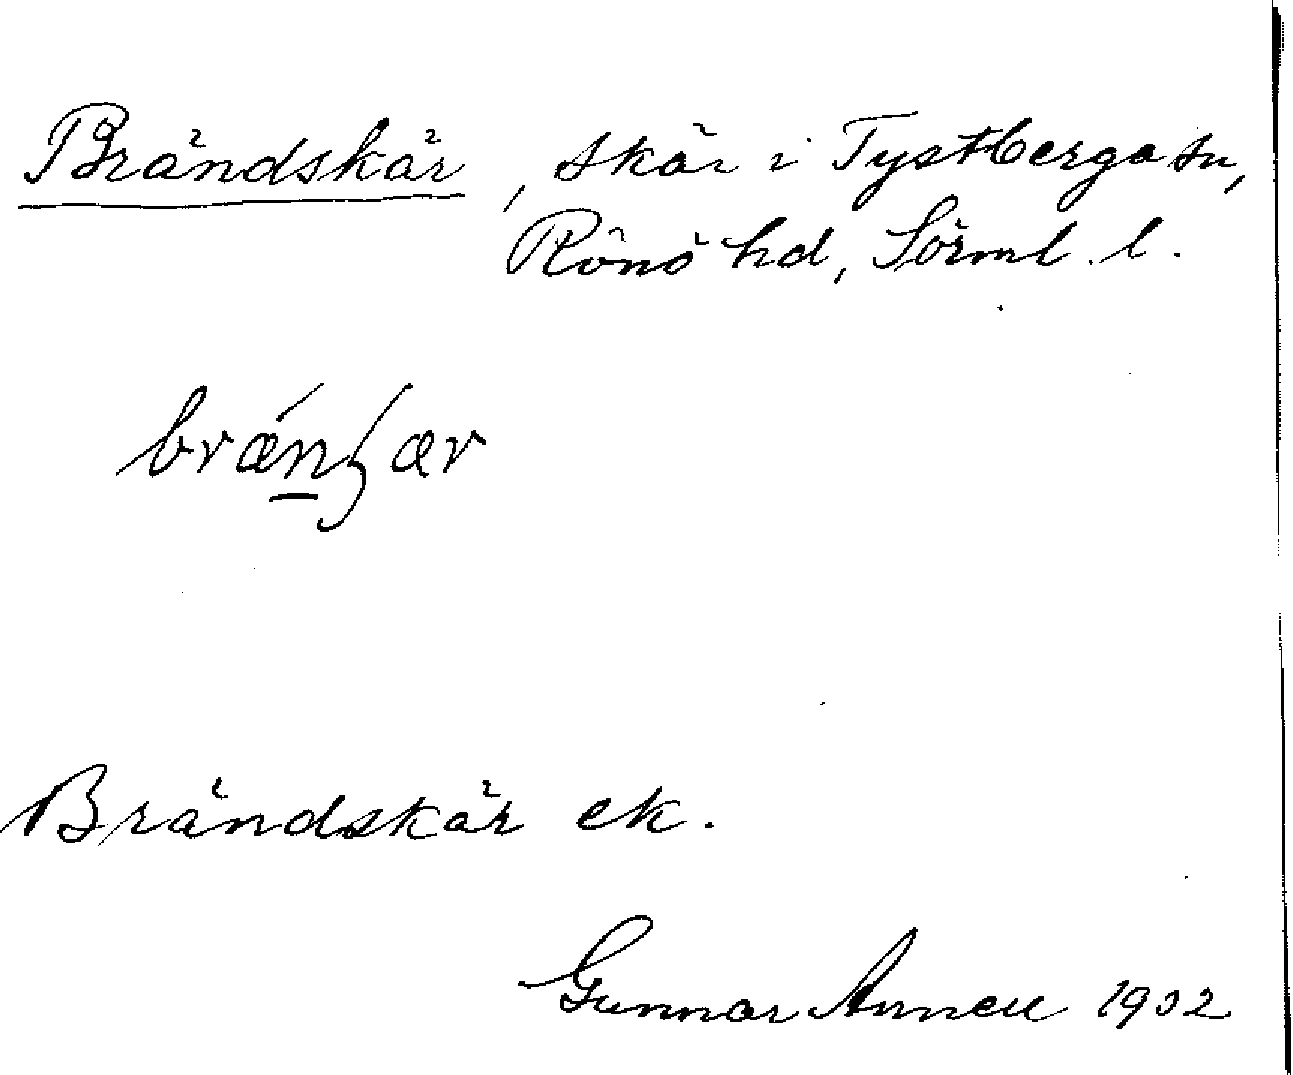 Brändskär, skär i Tystberga sn,
Rönö hd, Sörml. l.
Brändskär ek.
Gunnar 1932